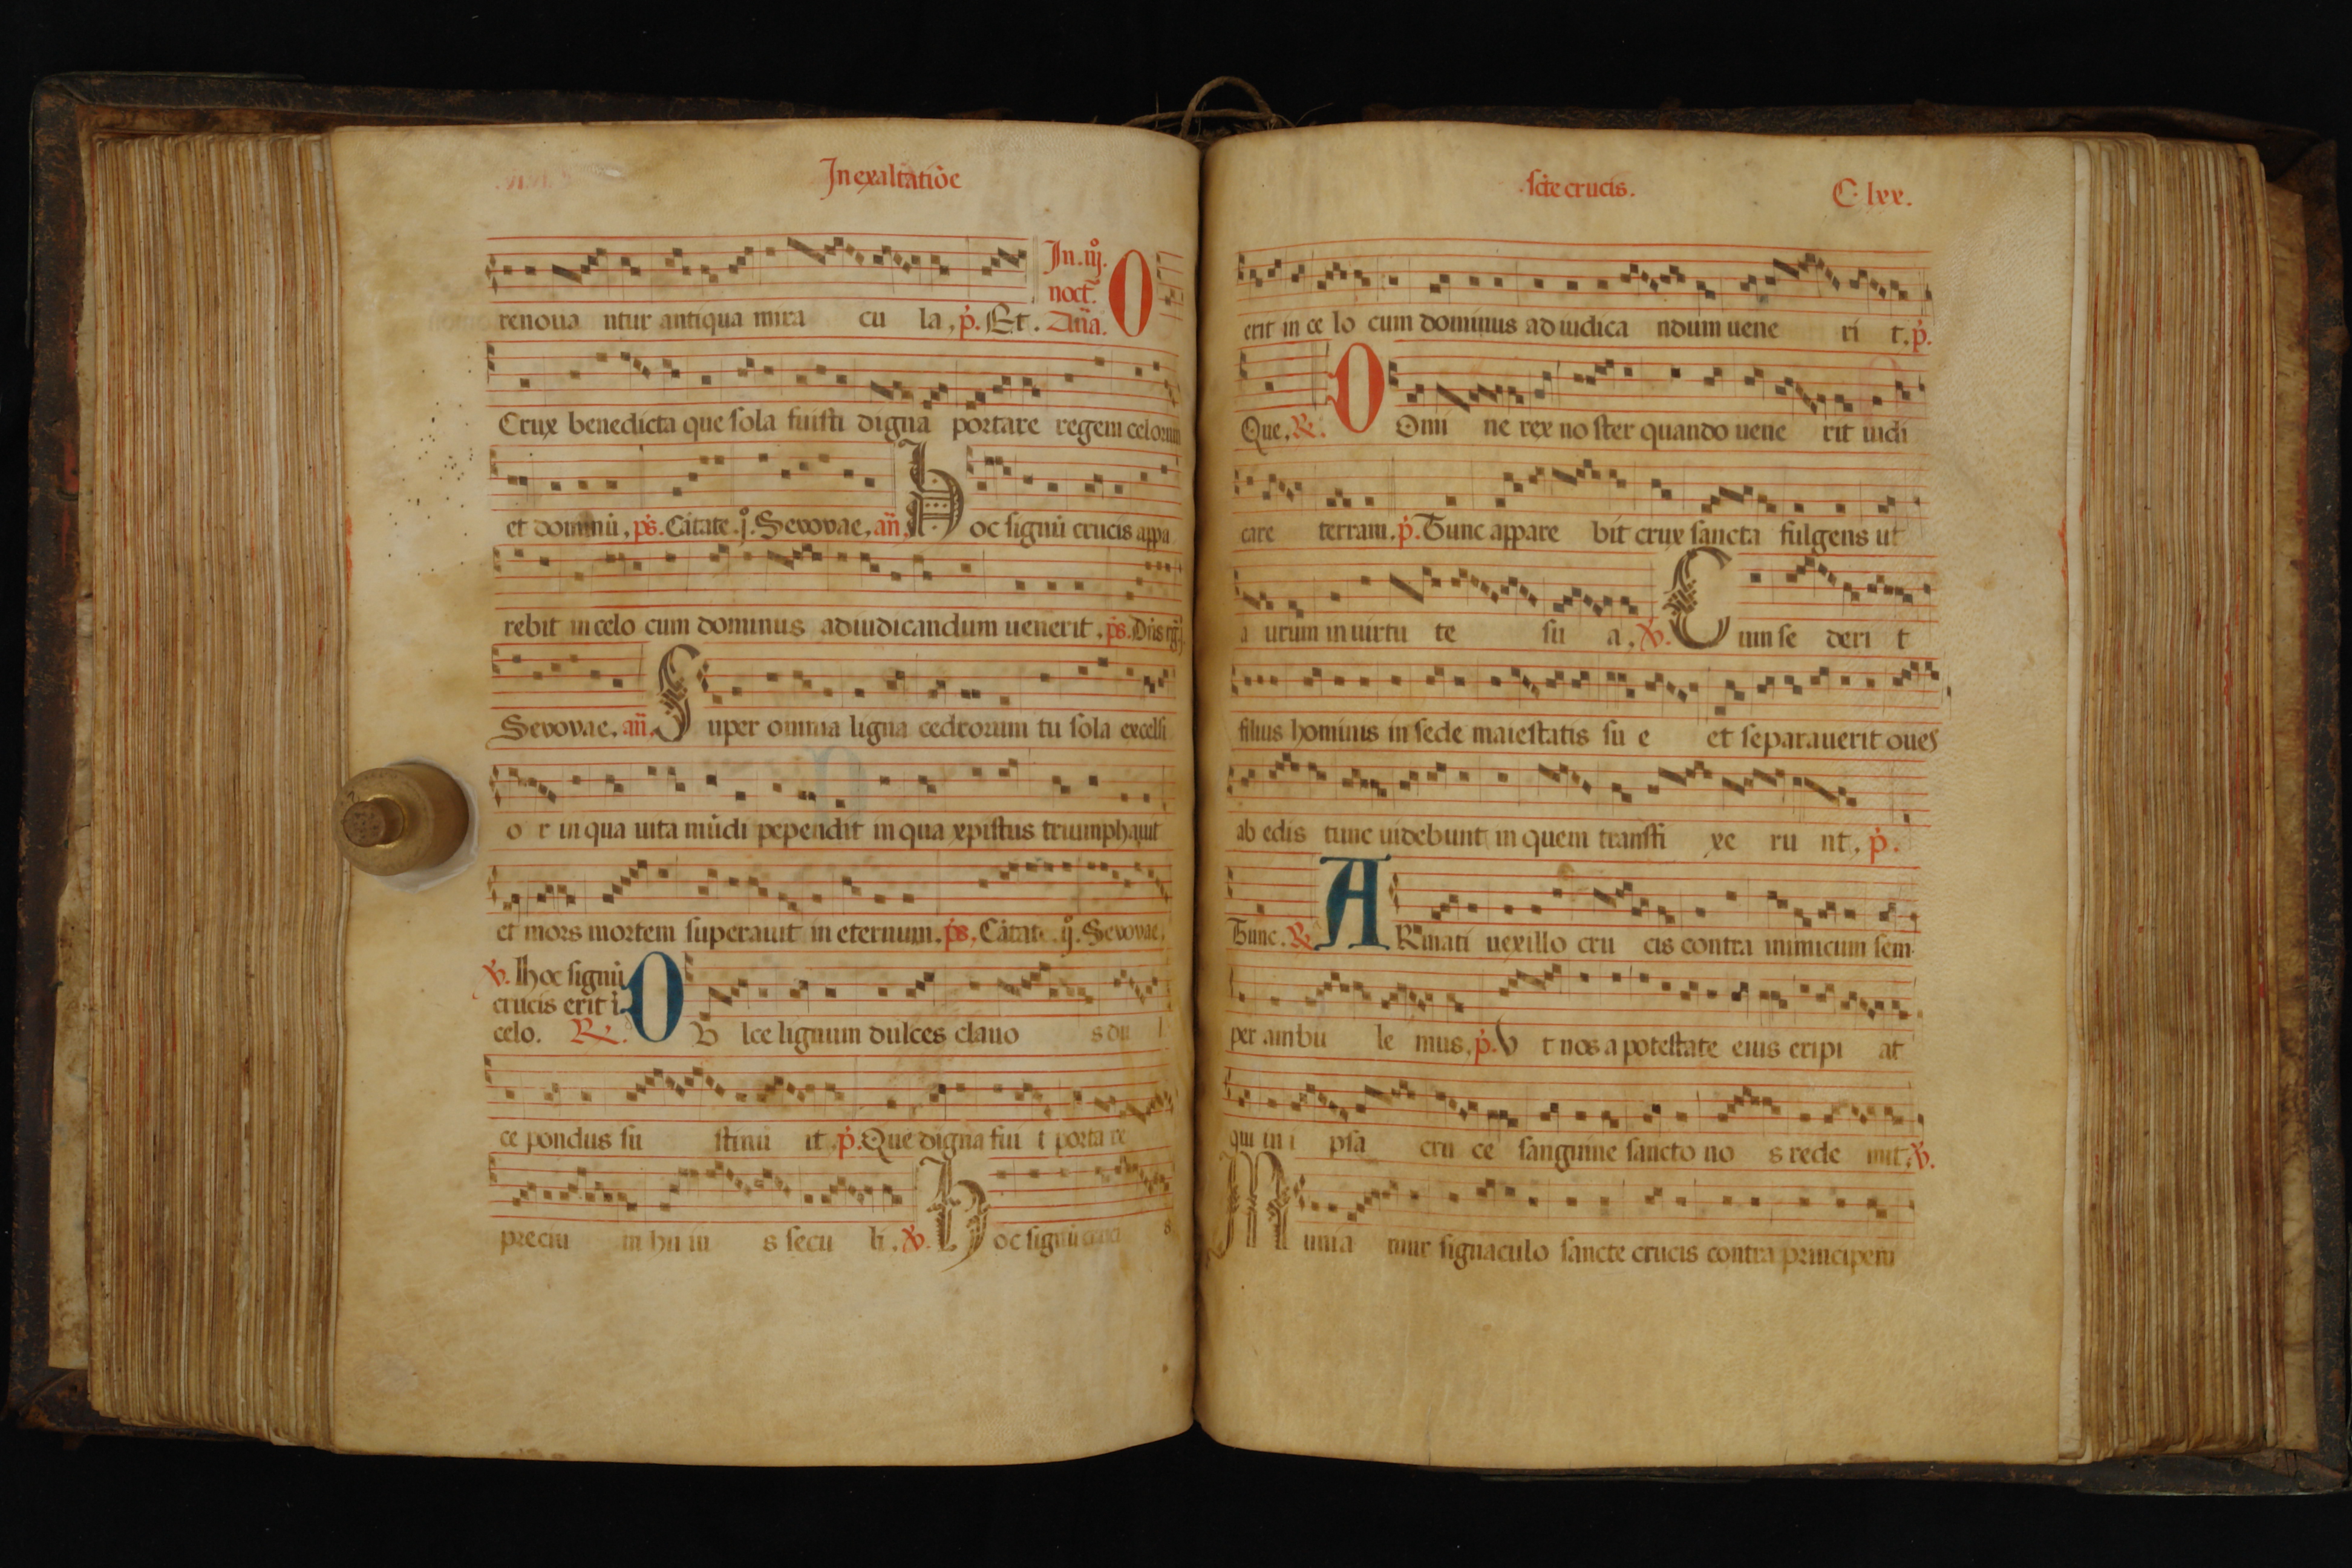 In exaltatiōe
renoua ntur antiqua mira cu la, p̄. Et.
In .iij. noct̄. An̄a. O
Crux benedicta que sola fuisti digna portare regem celorum
et dominū, pš. Cātate .j. Sevovae, an̄. Hoc signū crucis appa
rebit in celo cum dominus ad iudicandum uenerit, pš. Dn̄s
Sevovae, an̄. Super omnia ligna cedrorum tu sola excelsi
o r in qua uita mūdi pependit in qua xpistus triumphauit
et mors mortem superauit in eternum, pš, Cātate .ij. Sevovae,
℣. hoc signū
crucis erit ī
celo. ℟. DV lce lignum dulces clauo s du l
ce pondus su stinu it p̄. Que digna fui t porta re
preciū m hu iu s secu li. ℣. Hoc signū cruci s
scte crucis. C. lxx.
erit in ce lo cum dominus ad iudica ndum uene ri t, p̄.
Que, ℟. DOmi ne rex no ster quando uene rit iudi
care terram. p̄. Tunc appare bit crux sancta fulgens ut
a urum in uirtu te su a, ℣. Cum se deri t
filius hominis in sede maiestatis su e et separauerit oues
ab edis tunc uidebunt in quem transfi xe ru nt, p̄.
Tunc. ℟. ARmati uexillo cru cis contra inimicum sem
per ambu le mus, p̄. V t nos a potestate eius eripi at
qui in i psa cru ce sanguine sancto no s rede mit, ℣.
Munia mur signaculo sancte crucis contra principem